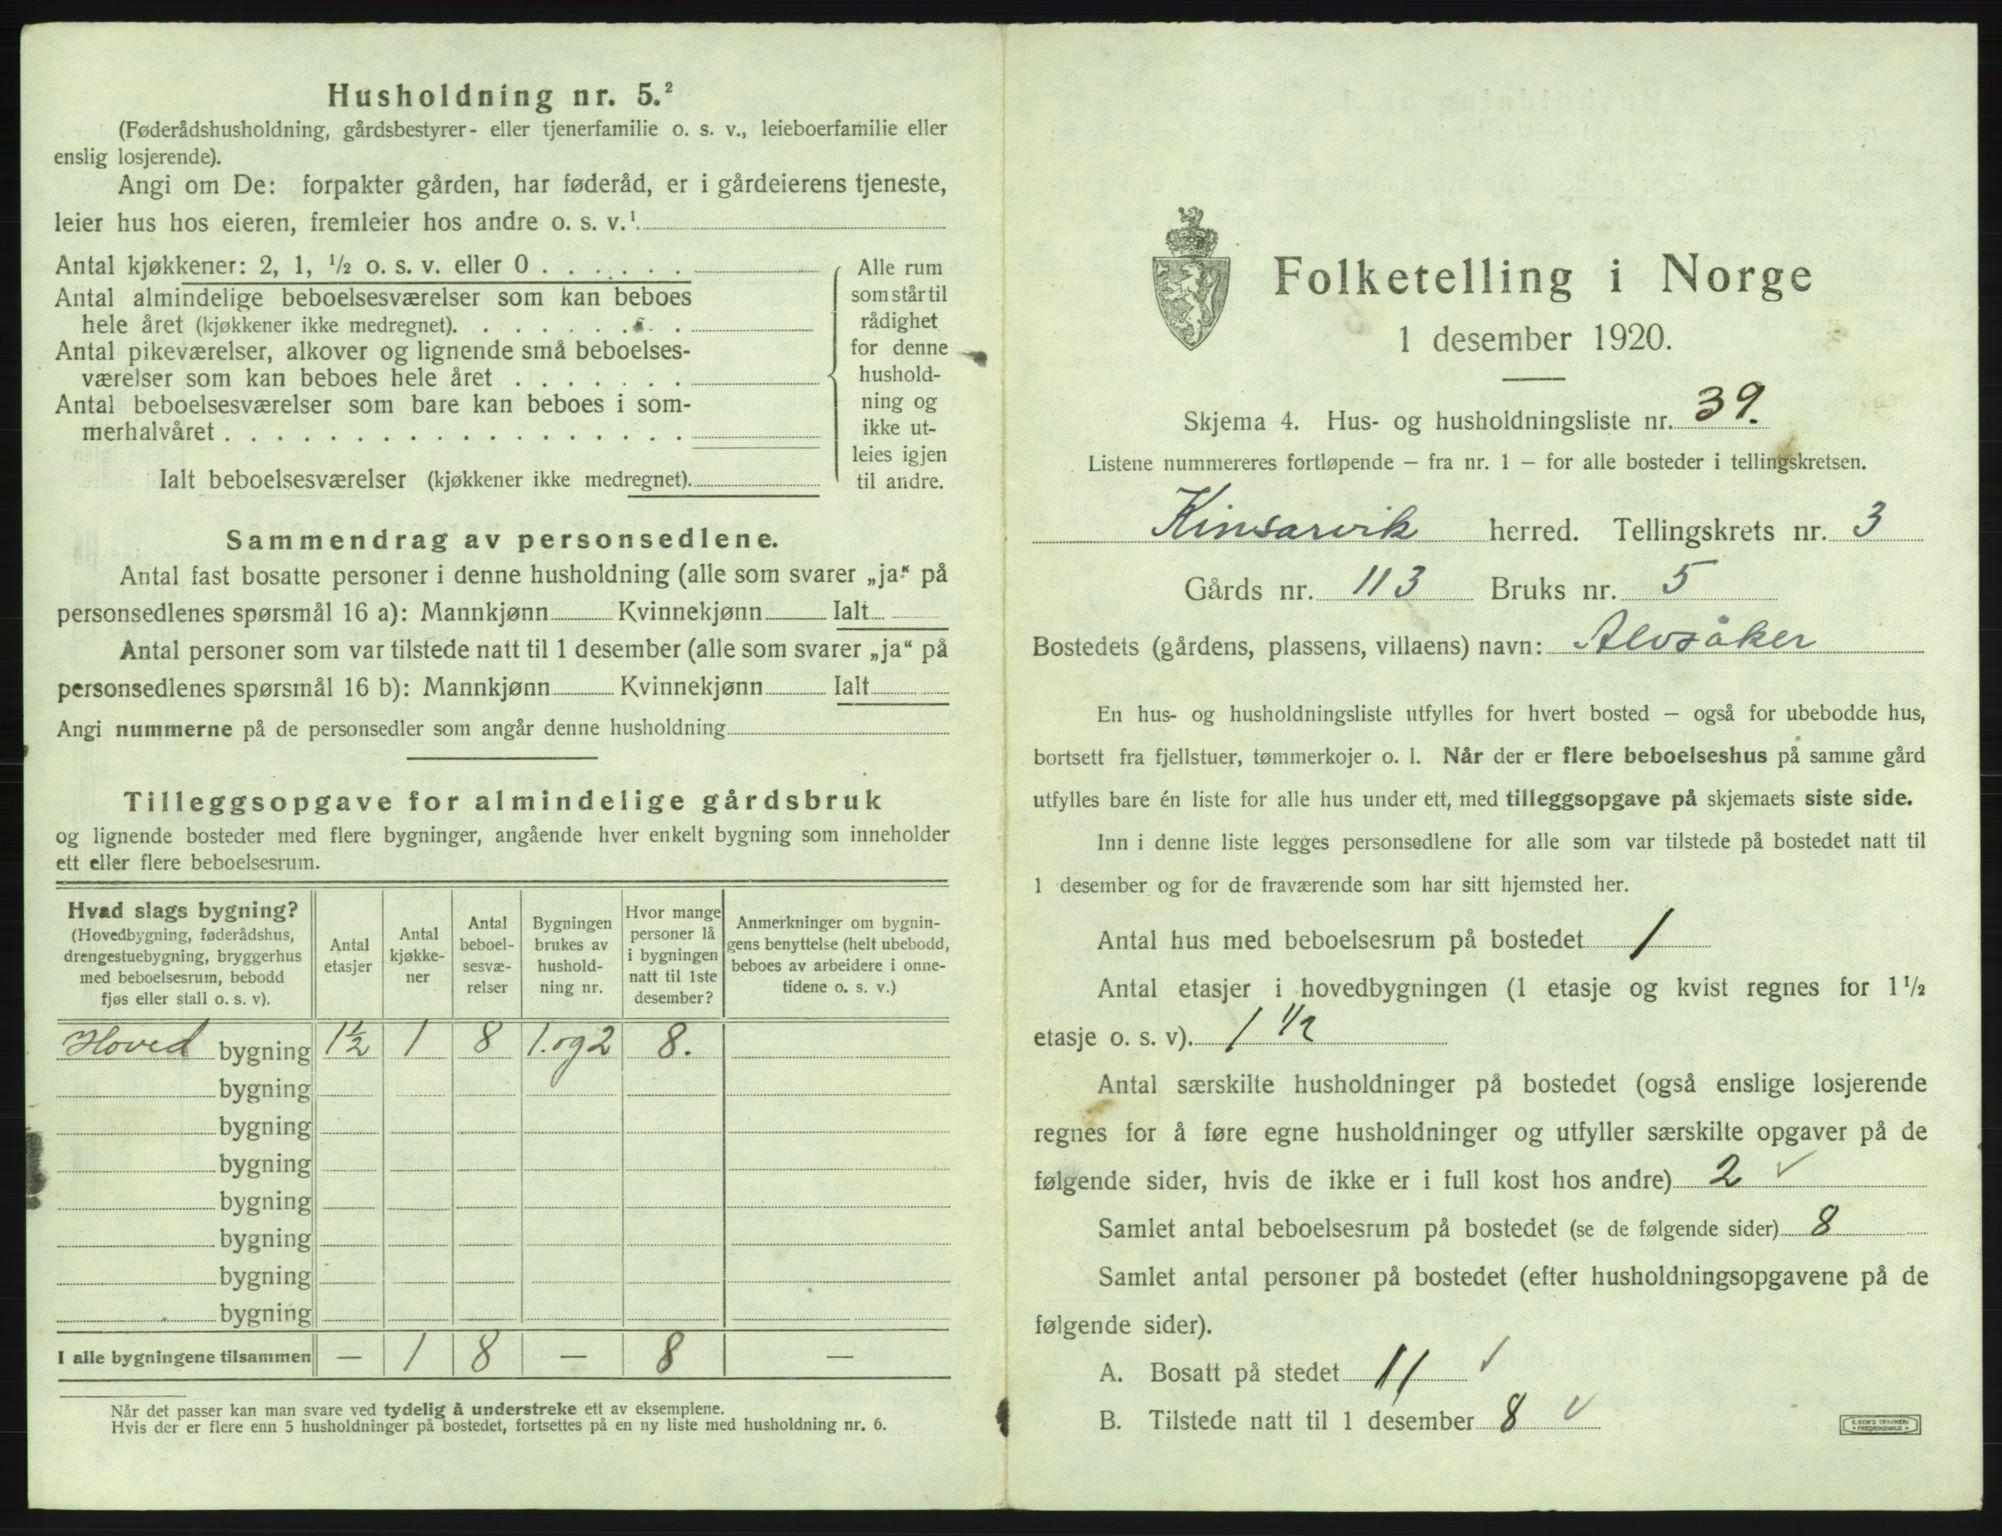 Husholdning nr. 5.²
(Føderådshusholdning, gårdsbestyrer- eller tjenerfamilie o. s. v., leieboerfamilie eller
enslig losjerende).
Angi om De: forpakter gården, har føderåd, er i gårdeierens tjeneste,
leier hus hos eieren, fremleier hos andre o. s. v.¹
Antal kjøkkener: 2, 1, ½ o. s. v. eller 0 . . . . . .
Antal almindelige beboelsesværelser som kan beboes
hele året (kjøkkener ikke medregnet). . . . . . . . .
Antal pikeværelser, alkover og lignende små beboelses-
værelser som kan beboes hele året . . . . . . .
Antal beboelsesværelser som bare kan beboes i som-
merhalvåret . . . . . . . . . . . . . . . . . .
Ialt beboelsesværelser (kjøkkener ikke medregnet).
Alle rum
som står til
rådighet
for denne
hushold-
ning og
ikke ut-
leies igjen
til andre.
Sammendrag av personsedlene.
Antal fast bosatte personer i denne husholdning (alle som svarer „ja“ på
personsedlenes spørsmål 16 a): Mannkjønn Kvinnekjønn Ialt
Antal personer som var tilstede natt til 1 desember (alle som svarer „ja“ på
personsedlenes spørsmål 16 b): Mannkjønn Kvinnekjønn Ialt
Angi nummerne på de personsedler som angår denne husholdning
Tilleggsopgave for almindelige gårdsbruk
og lignende bosteder med flere bygninger, angående hver enkelt bygning som inneholder
ett eller flere beboelsesrum.
Hvad slags bygning?
(Hovedbygning, føderådshus,
drengestuebygning, bryggerhus
med beboelsesrum, bebodd
fjøs eller stall o. s. v).
Antal
etasjer
Antal
kjøkke-
ner
Antal
beboel-
sesvæ-
relser
Bygningen
brukes av
hushold-
ning nr.
Hvor mange
personer lå
i bygningen
natt til 1ste
desember?
Anmerkninger om bygnin-
gens benyttelse (helt ubebodd,
beboes av arbeidere i onne-
tidene o. s. v.)
Hoved bygning 1½ 1 8 1. og 2 8.
bygning
bygning
bygning
bygning
bygning
bygning
bygning
I alle bygningene tilsammen — 1 8 — 8 —
Når det passer kan man svare ved tydelig å understreke ett av eksemplene.
Hvis der er flere enn 5 husholdninger på bostedet, fortsettes på en ny liste med husholdning nr. 6.
Folketelling i Norge
1 desember 1920.
Skjema 4. Hus- og husholdningsliste nr. 39.
Listene nummereres fortløpende – fra nr. 1 – for alle bosteder i tellingskretsen.
Kinsarvik herred. Tellingskrets nr. 3
Gårds nr. 113 Bruks nr. 5
Bostedets (gårdens, plassens, villaens) navn: Alvsåker
En hus- og husholdningsliste utfylles for hvert bosted – også for ubebodde hus,
bortsett fra fjellstuer, tømmerkojer o. l. Når der er flere beboelseshus på samme gård
utfylles bare én liste for alle hus under ett, med tilleggsopgave på skjemaets siste side.
Inn i denne liste legges personsedlene for alle som var tilstede på bostedet natt til
1 desember og for de fraværende som har sitt hjemsted her.
Antal hus med beboelsesrum på bostedet 1
Antal etasjer i hovedbygningen (1 etasje og kvist regnes for 1½
etasje o. s. v). 1 1/2
Antal særskilte husholdninger på bostedet (også enslige losjerende
regnes for å føre egne husholdninger og utfyller særskilte opgaver på de
følgende sider, hvis de ikke er i full kost hos andre) 2 ✓
Samlet antal beboelsesrum på bostedet (se de følgende sider) 8
Samlet antal personer på bostedet (efter husholdningsopgavene på de
følgende sider).
A. Bosatt på stedet 11 ✓
B. Tilstede natt til 1 desember 8 ✓